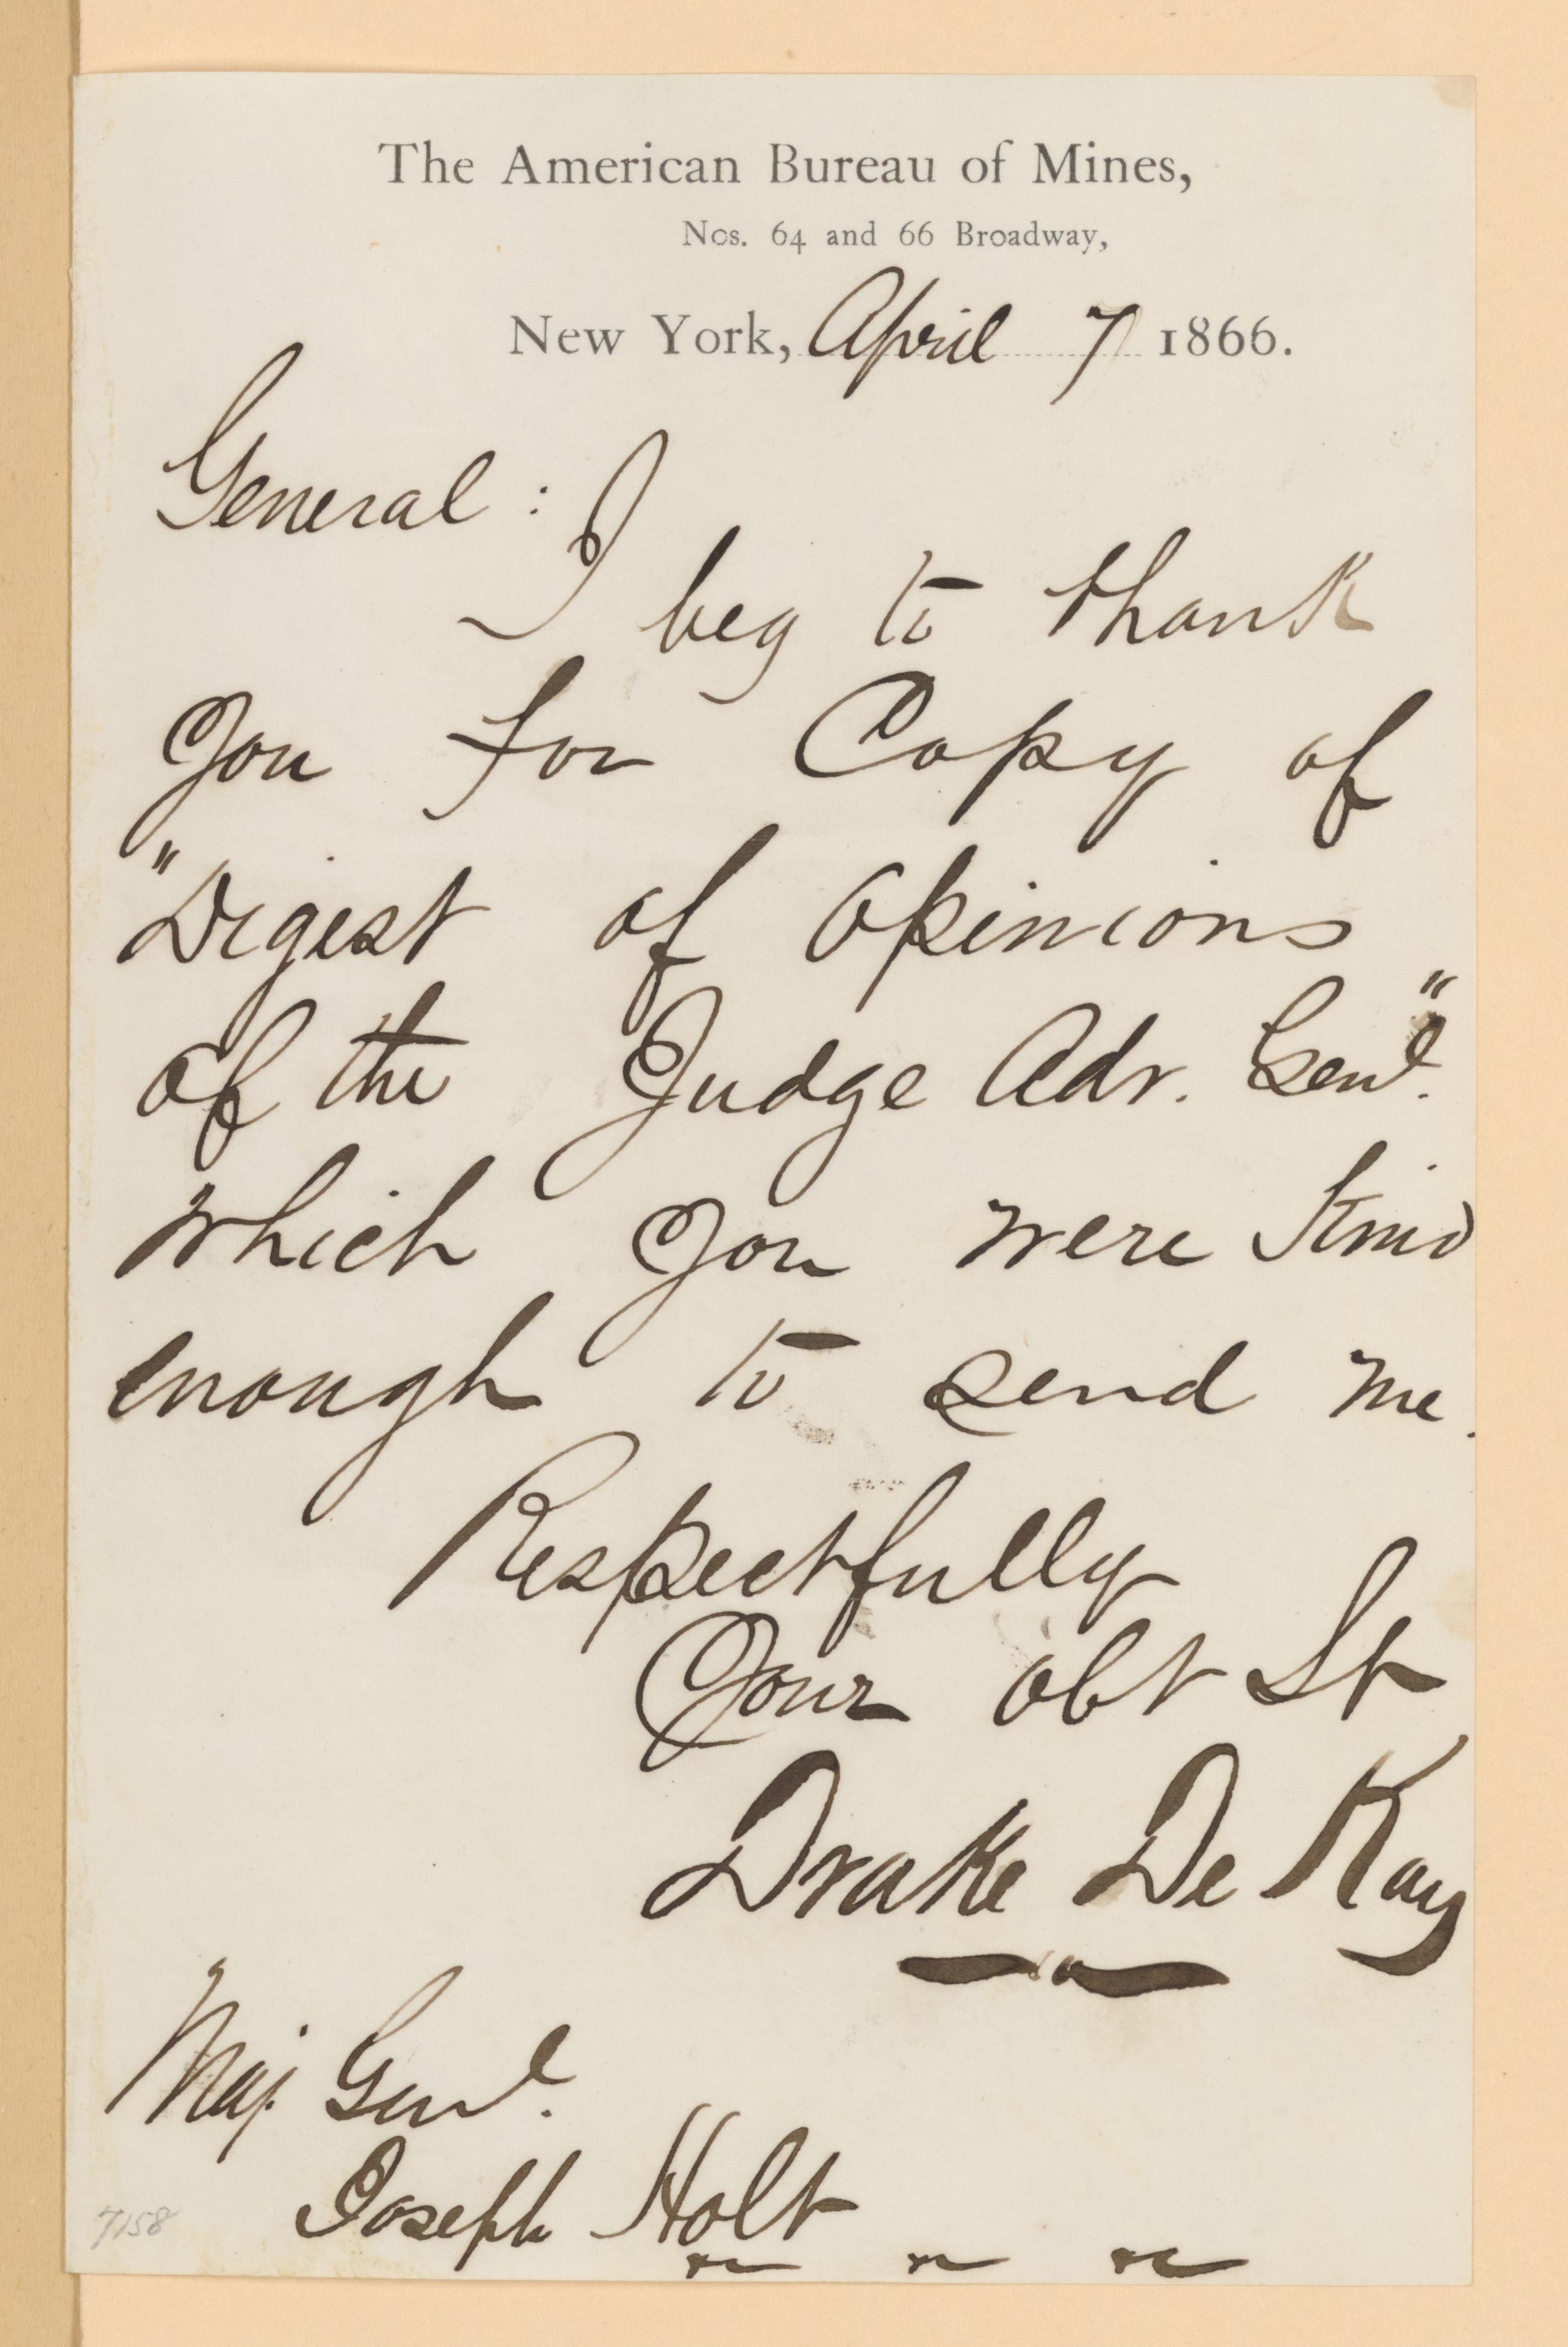 The American Bureau of Mines,
Nos. 64 and 66 Broadway,
New York, April 7 1866.
General :
I beg to thank
you for Copy of
"Digest of Opinions
of the Judge Adv. Genl."
which you were Kind
enough to send me.
Respectfully
Your obt St
Drake De Kay
Maj. Genl.
Joseph Holt
7158